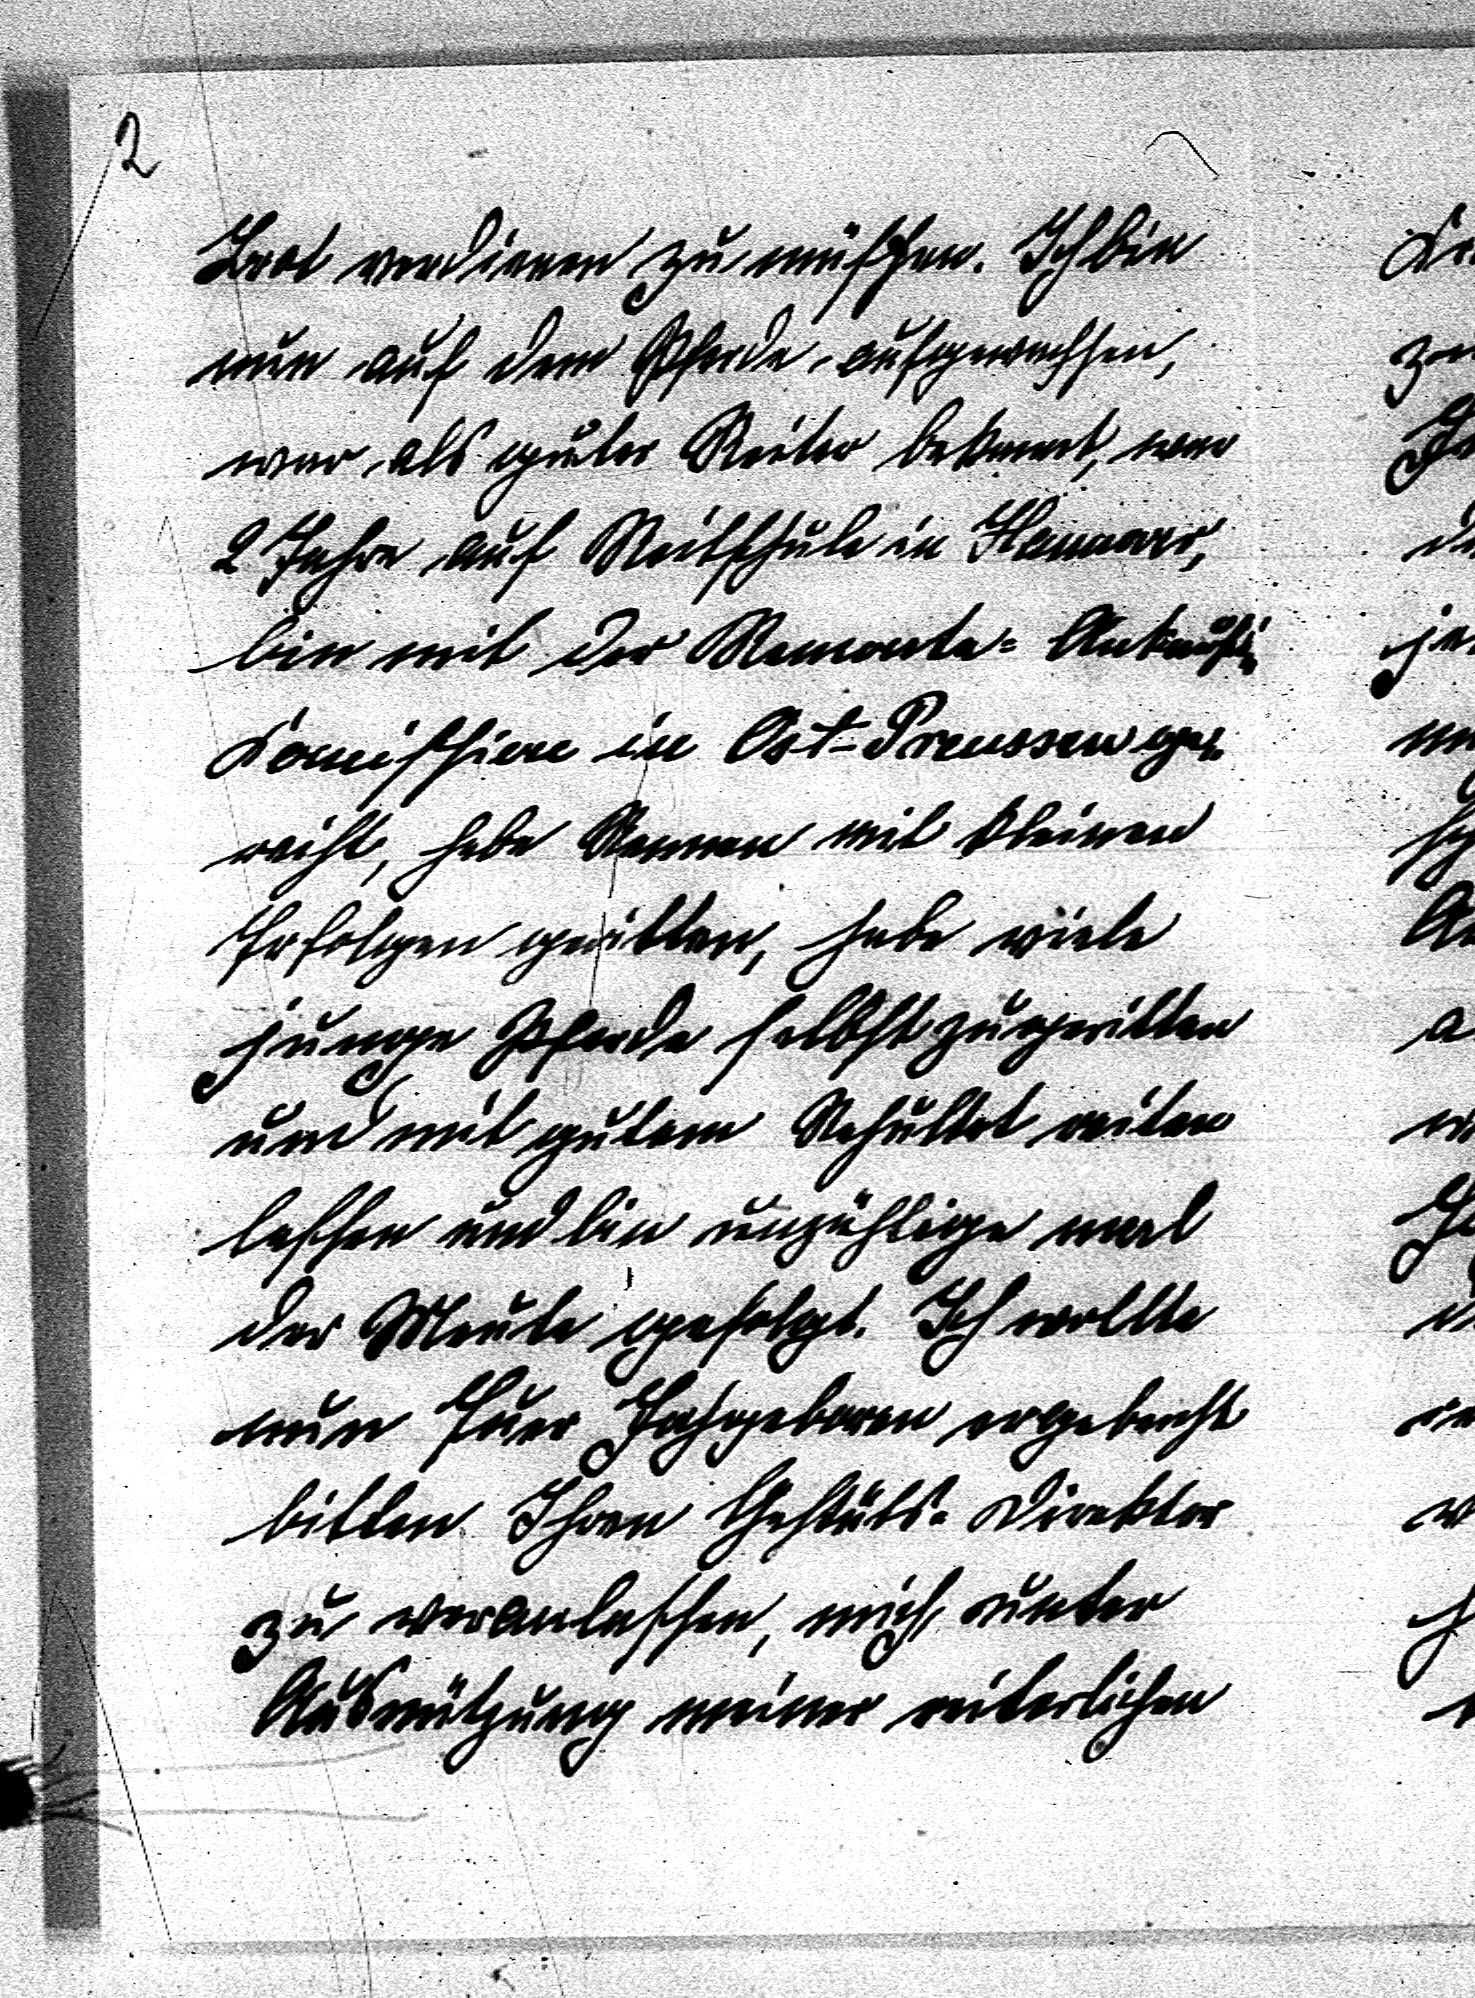 2
Brot verdienen zu müssen. Ich bin
nun auf dem Pferde aufgewachsen,
war als guter Reiter bekannt, war
2 Jahre auf Reitschule in Hannover,
bin mit der Remonte= Ankaufs=
Comission in Ost-Preussen ge=
reist, habe Rennen mit kleinen
Erfolgen geritten, habe viele
junge Pferde selbst zugeritten
und mit gutem Resultat reiten
lassen und bin unzählige mal
der Meute gefolgt. Ich wollte
nun Euer Hochgeboren ergebenst
bitten Ihren Gestüts= Direktor
zu veranlassen, mich unter
Ausnützung meiner reiterlichen